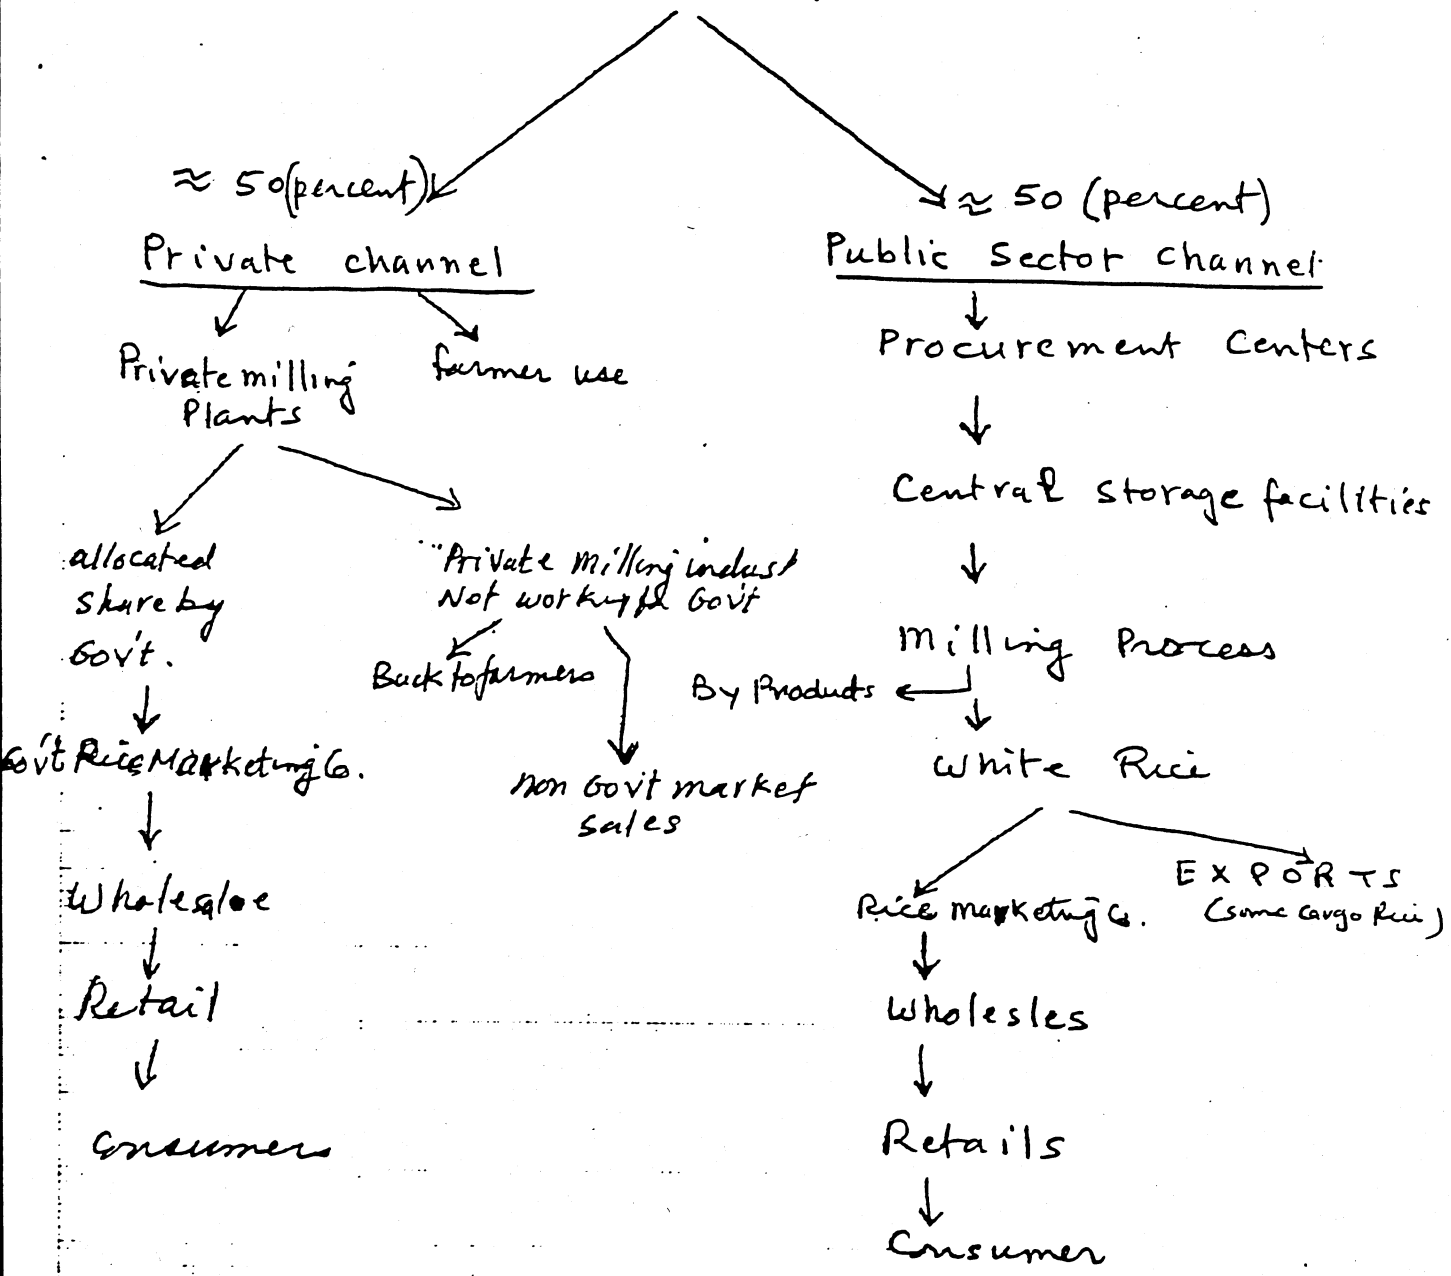 ≈ 50 (percent)
Private channel
Private milling
Plants
farmer use
allocated
share by
Gov't.
Gov't Rice Marketing Co.
Wholesaloe
Retail
Consumers
"Private milling indust
Not working Gov't
Back to farmers
non Gov't market
sales
≈ 50 (percent)
Public Sector Channel
Procurement Centers
Central Storage facilities
Milling Process
By Products
White Rice
EXPORTS
(some cargo Rice)
Rice Marketing Co.
Wholesles
Retails
Consumer